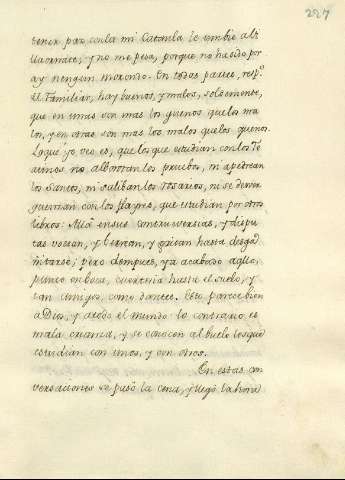 227
tenir paz con la mi Catanla le embie al
Illuarnate; y no me pesa, porque no ha sido por
ay ningun morondo. En todas partes, resp.º
el Familiar, hay buenos, y malos, solamente,
que en unas son mas los buenos que los ma
los, y en otras son mas los malos que los buenos.
Lo que yo veo es, que los que estudian con los Te
atinos no alborotan los pueblos, ni apedrean
los Santos, ni silban los rosarios, ni se desver
guenzan con los flayres, que estudian por otros
libros: Allá en sus contruversias, y dispu
tas vocean, y levantan, y gritan hasta desga
ñitarse; pero despues, ya acabado aquello,
punto en boca, cuerteria hasta el suelo, y
tan amigos como dantes. Esto parece bien
a Dios, y a todo el mundo: lo contrario es
mala crianza, y se conocen al buelo los que
estudian con unos, y con otros.
En estas con
versaciones se pasó la cena, y llegó la hora